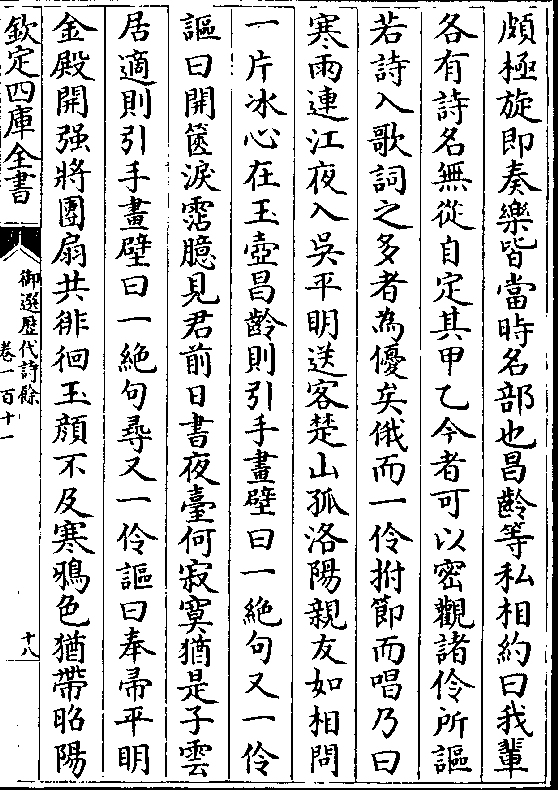 頗極旋即奏樂皆當時名部也昌齡等私相約曰我輩
各有詩名無從自定其甲乙今者可以密觀諸伶所謳
若詩入歌詞之多者為優矣俄而一伶拊節而唱乃曰
寒雨連江夜入吳平明送客楚山孤洛陽親友如相問
一片冰心在玉壺昌齡則引手畫壁曰一絶句又一伶
謳曰開篋淚霑臆見君前日書夜臺何寂寞猶是子雲
居適則引手畫壁曰一絶句尋又一伶謳曰奉帚平明
金殿開强將團扇共徘徊玉顔不及寒鴉色猶帶昭陽
欽定四庫全書
御選歷代詩餘
卷一百十一
十八